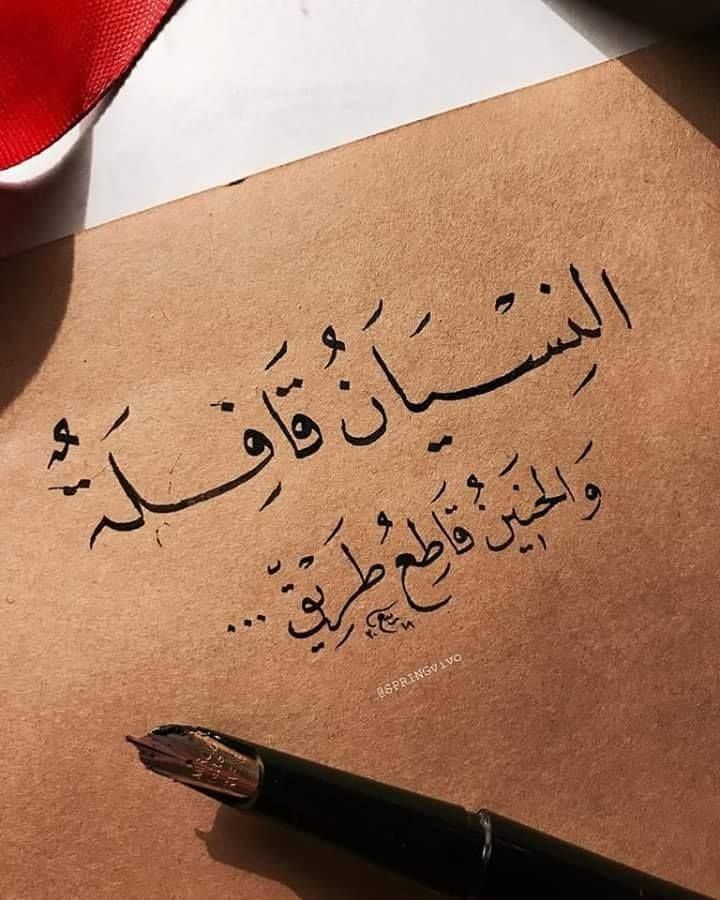 النِسْيَانُ قَافِلَةٌ
وَالحَنِينُ قَاطِعُ طَرِيْقٍ ...
ربيع ٢٠١٨
@SPRINGvivo